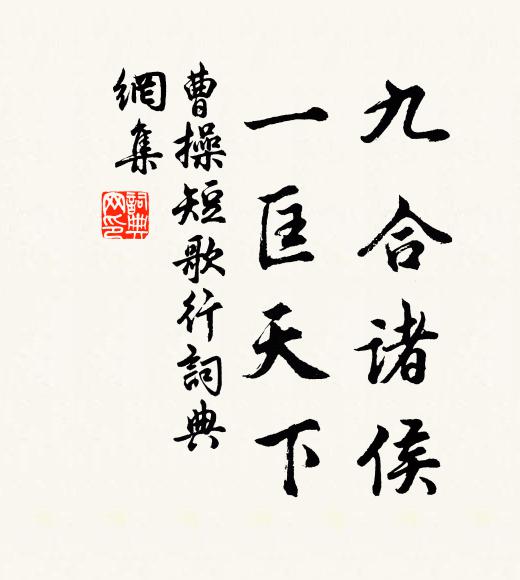 九合诸侯
一匡天下
曹操短歌行詞典
網集
詞典
网印